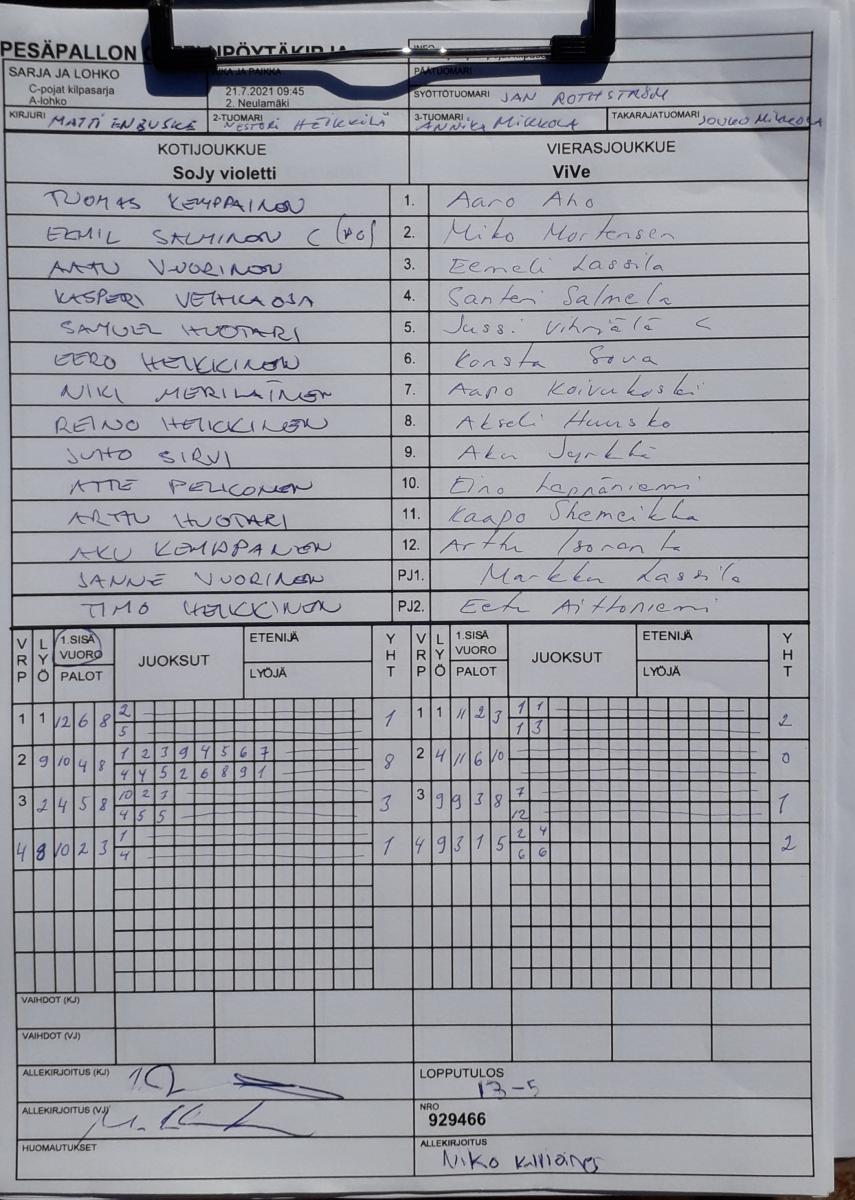 PESÄPALLON
SARJA JA LOHKO
C-pojat kilpasarja
A-lohko
AIKA JA PAIKKA
21.7.2021 09:45
2. Neulamäki
PÄÄTUOMARI
SYÖTTÖTUOMARI JAN ROTHSTRÖM
KIRJURI MATTI ENBUSKE 2-TUOMARI NESTORI HEIKKILÄ 3-TUOMARI ANNIKA MIKKOLA TAKARAJATUOMARI JOUKO MIKKOLA
KOTIJOUKKUE VIERASJOUKKUE
SoJy violetti ViVe
TUOMAS KEMPPAINEN 1. Aaro Aho
EEMIL SALMINEN C 2. Miko Mortensen
AATU VUORINEN 3. Eemeli Lassila
KASPERI VEHKAOJA 4. Santeri Salmela
SAMUEL HUOTARI 5. Jussi Vihriälä C
EERO HEIKKINEN 6. Konsta Sova
NIKI MERILÄINEN 7. Aapo Koivukoski
REINO HEIKKINEN 8. Akseli Huusko
JUHO SIRVI 9. Aku Jyrkkä
ATTE PELKONEN 10. Eino Lapnäniemi
ARTTU HUOTARI 11. Kaapo Shemeikka
AKU KEMPPAINEN 12. Arttu Isoranta
JANNE VUORINEN PJ1. Markku Lassila
TIMO HEIKKINEN PJ2. Eetu Aittoniemi
VRP LYÖ 1.SISÄ VUORO PALOT JUOKSUT ETENIJÄ LYÖJÄ YHT VRP LYÖ 1.SISÄ VUORO PALOT JUOKSUT ETENIJÄ LYÖJÄ YHT
1 1 12 6 8 2 1 1 1 11 2 3 1 1 2
5 1 3
2 9 10 4 8 1 2 3 9 4 5 6 7 8 2 4 11 6 10 0
4 4 5 2 6 8 9 1
3 2 4 5 8 10 2 3 3 3 9 9 3 8 7 1
4 5 5 12
4 8 10 2 3 1 1 4 9 3 1 5 2 4 2
4 6 6
VAIHDOT (KJ)
VAIHDOT (VJ)
ALLEKIRJOITUS (KJ) LOPPUTULOS
13-5
ALLEKIRJOITUS (VJ) NRO
929466
HUOMAUTUKSET ALLEKIRJOITUS
NIKO